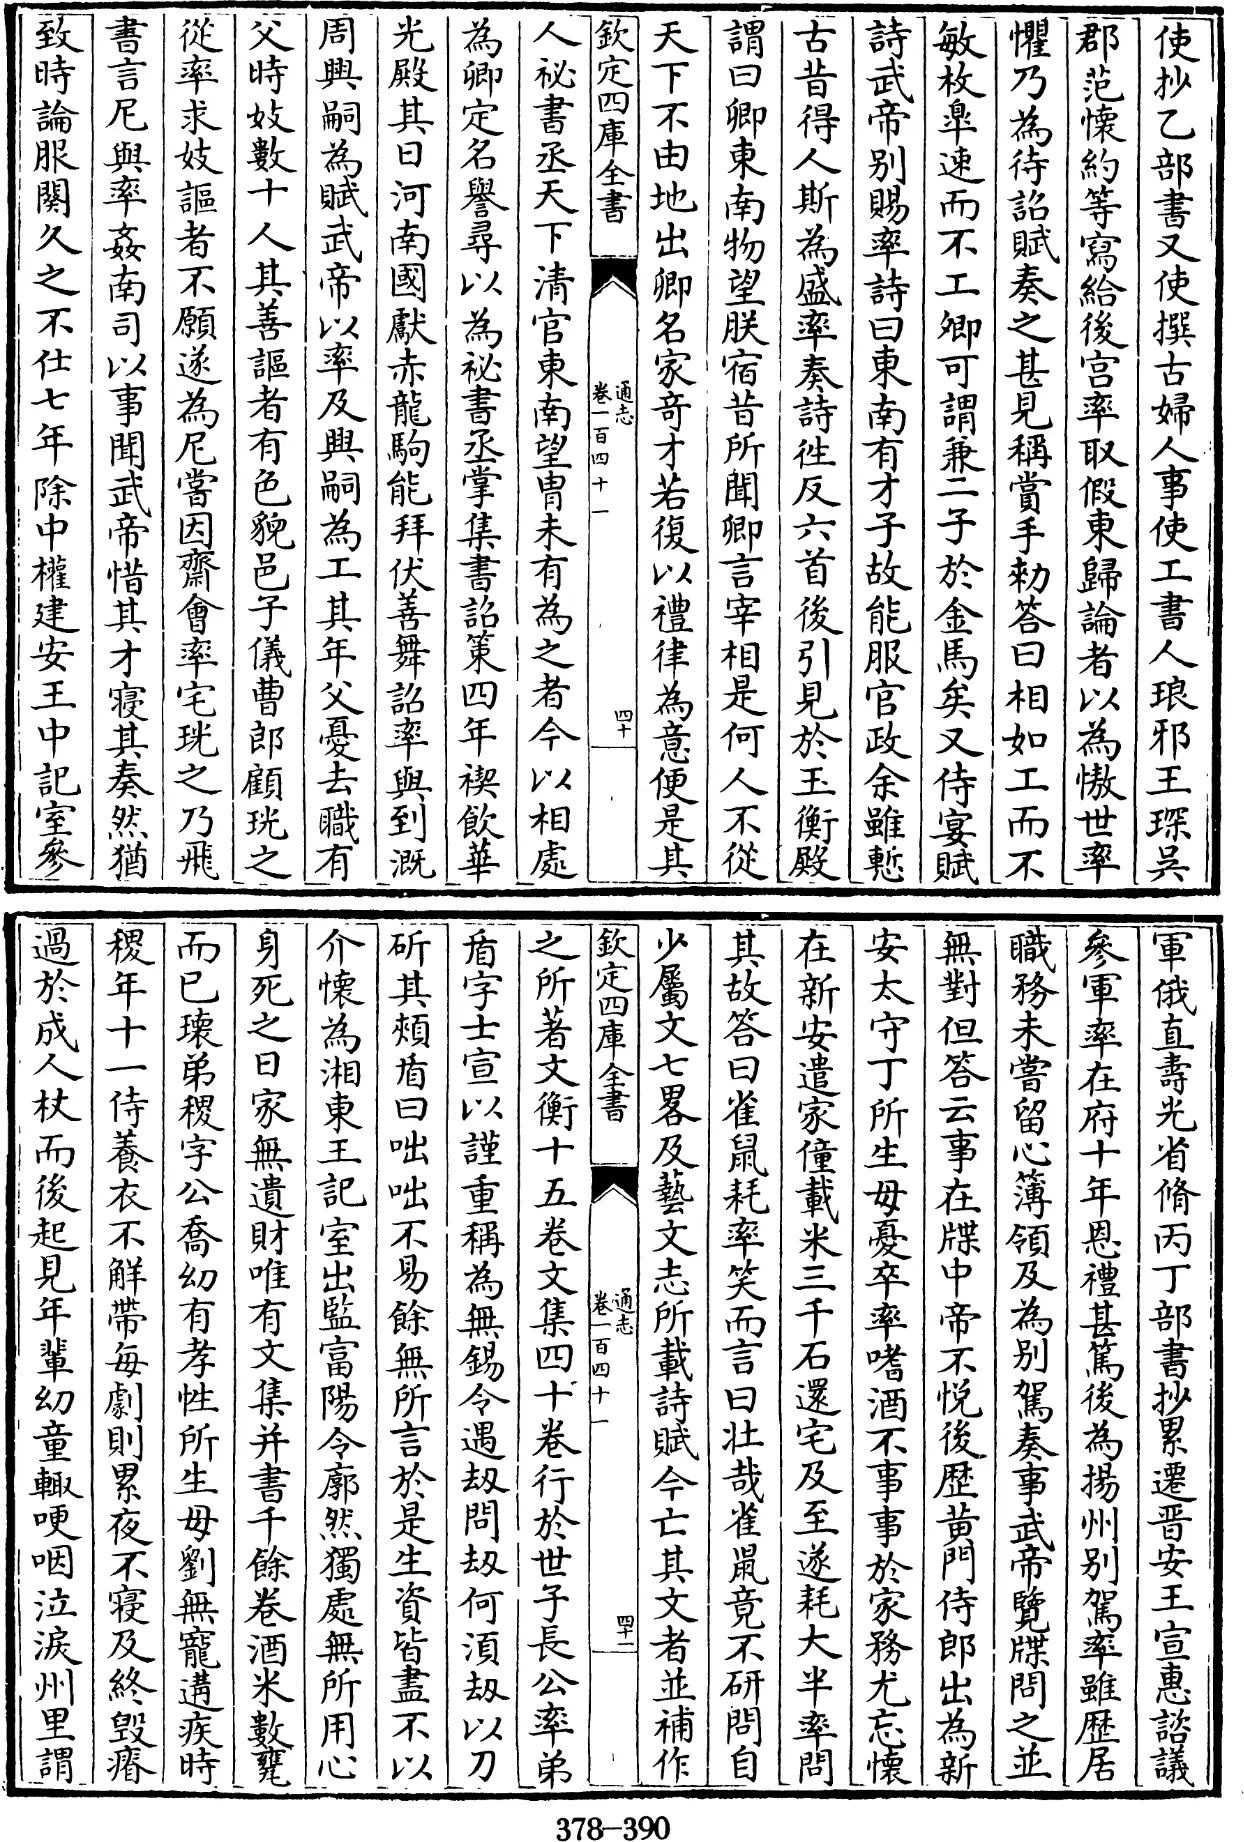 使抄乙部書又使撰古婦人事使工書人琅邪王琛吳
郡范懷約等寫給後宮率取假東歸論者以為慠世率
懼乃為待詔賦奏之甚見稱賞手勑答曰相如工而不
敏枚臯速而不工卿可謂兼二子於金馬矣又侍宴賦
詩武帝别賜率詩曰東南有才子故能服官政余雖慙
古昔得人斯為盛率奏詩徃反六首後引見於玉衡殿
謂曰卿東南物望朕宿昔所聞卿言宰相是何人不從
天下不由地出卿名家奇才若復以禮律為意便是其
欽定四庫全書
通志
卷一百四十一
四十
人祕書丞天下清官東南望胄未有為之者今以相處
為卿定名譽尋以為祕書丞掌集書詔策四年禊飲華
光殿其日河南國獻赤龍駒能拜伏善舞詔率與到溉
周興嗣為賦武帝以率及興嗣為工其年父憂去職有
父時妓數十人其善謳者有色貌邑子儀曹郎顧珖之
從率求妓謳者不願遂為尼嘗因齋會率宅珖之乃飛
書言尼與率姦南司以事聞武帝惜其才寝其奏然猶
致時論服闋久之不仕七年除中權建安王中記室參
軍俄直壽光省脩丙丁部書抄累遷晋安王宣惠諮議
參軍率在府十年恩禮甚篤後為揚州别駕率雖歴居
職務未嘗留心簿領及為别駕奏事武帝覽牒問之並
無對但答云事在牒中帝不悅後歴黄門侍郎出為新
安太守丁所生母憂卒率嗜酒不事事於家務尤忘懷
在新安遣家僮載米三千石還宅及至遂耗大半率問
其故答曰雀鼠耗率笑而言曰壯哉雀鼠竟不研問自
少屬文七畧及藝文志所載詩賦今亡其文者並補作
欽定四庫全書
通志
卷一百四十一
四十一
之所著文衡十五卷文集四十卷行於世子長公率弟
盾字士宣以謹重稱為無錫令遇刼問刼何湏刼以刀
斫其頰盾曰咄咄不易餘無所言於是生資皆盡不以
介懷為湘東王記室出監富陽令廓然獨處無所用心
身死之日家無遺財唯有文集并書千餘卷酒米數甕
而已瓌弟稷字公喬幼有孝性所生母劉無寵遘疾時
稷年十一侍養衣不解帶每劇則累夜不寝及終毁瘠
過於成人杖而後起見年輩幼童輙哽咽泣淚州里謂
378-390